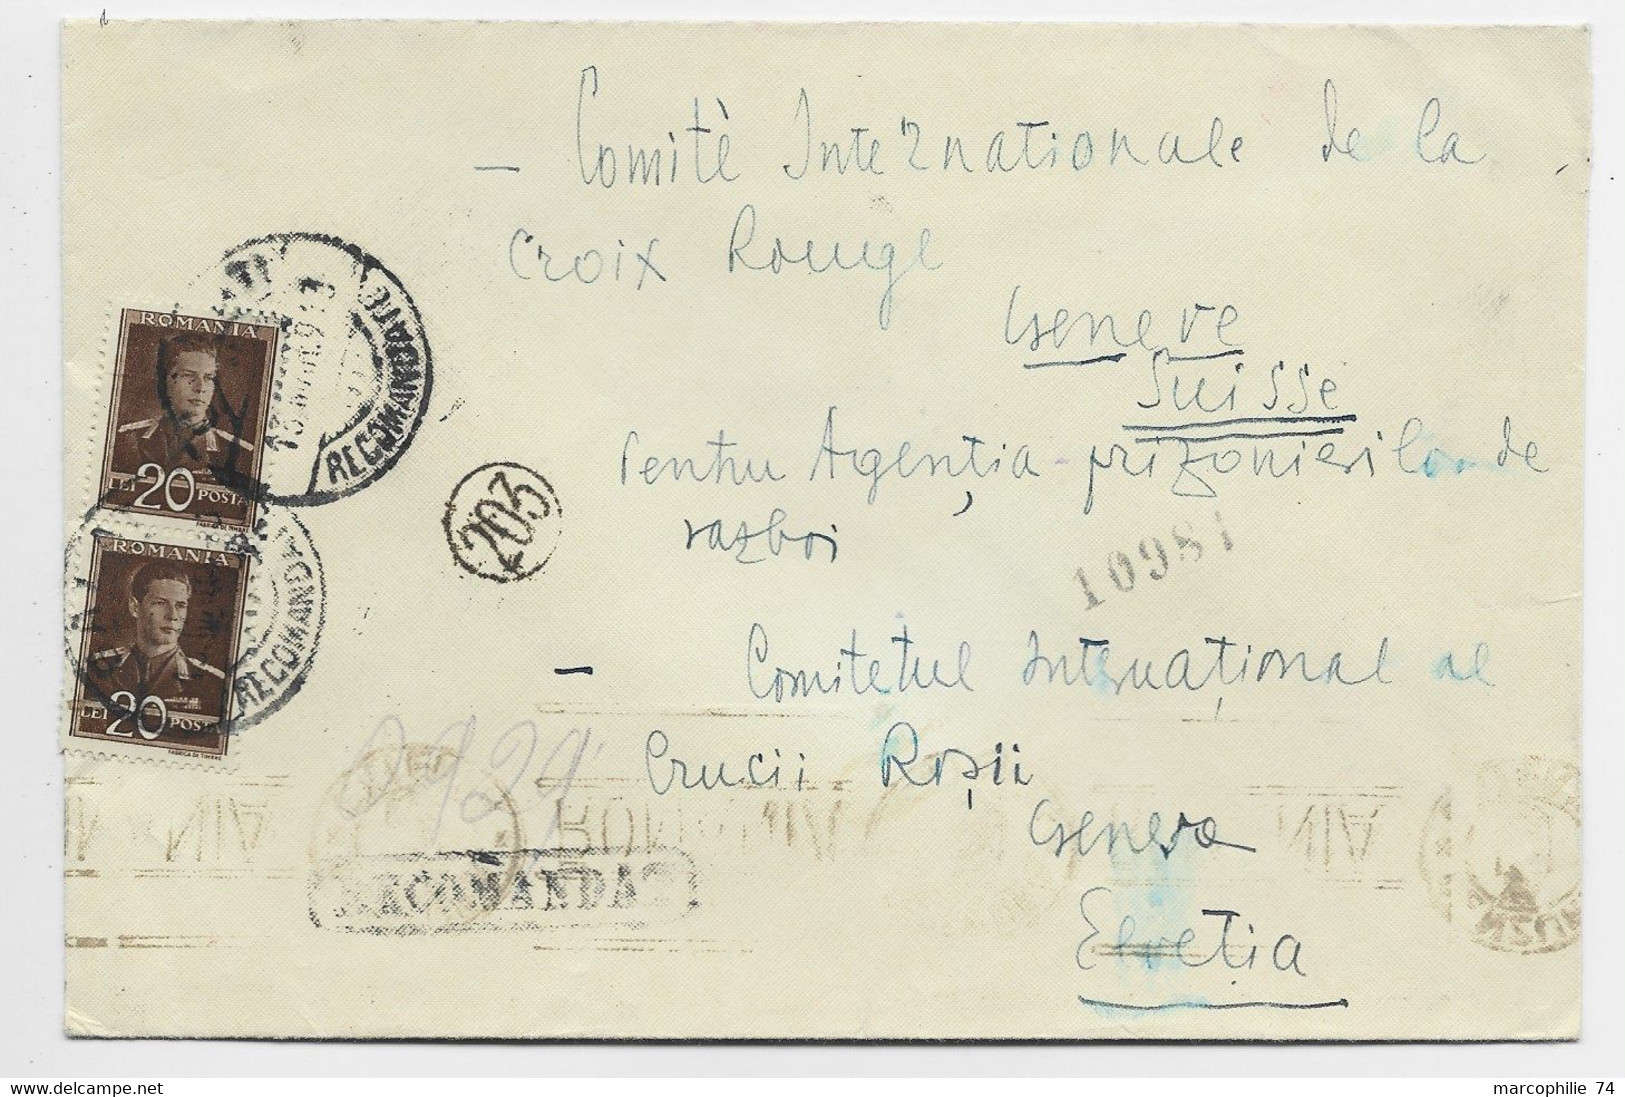 - Comitè Internationale de la
Croix Rouge
Geneve
Suisse
Pentru Agenția prizonierilor de
razboi
10981
- Comitetul Internațional al
Crucii Roșii
Geneva
Elveția
ROMANIA
LEI 20 POSTA
FABRICA DE TIMBRE
ROMANIA
LEI 20 POSTA
FABRICA DE TIMBRE
RECOMANDATE
RECOMANDATE
203
RECOMANDAT
marcophilie 74